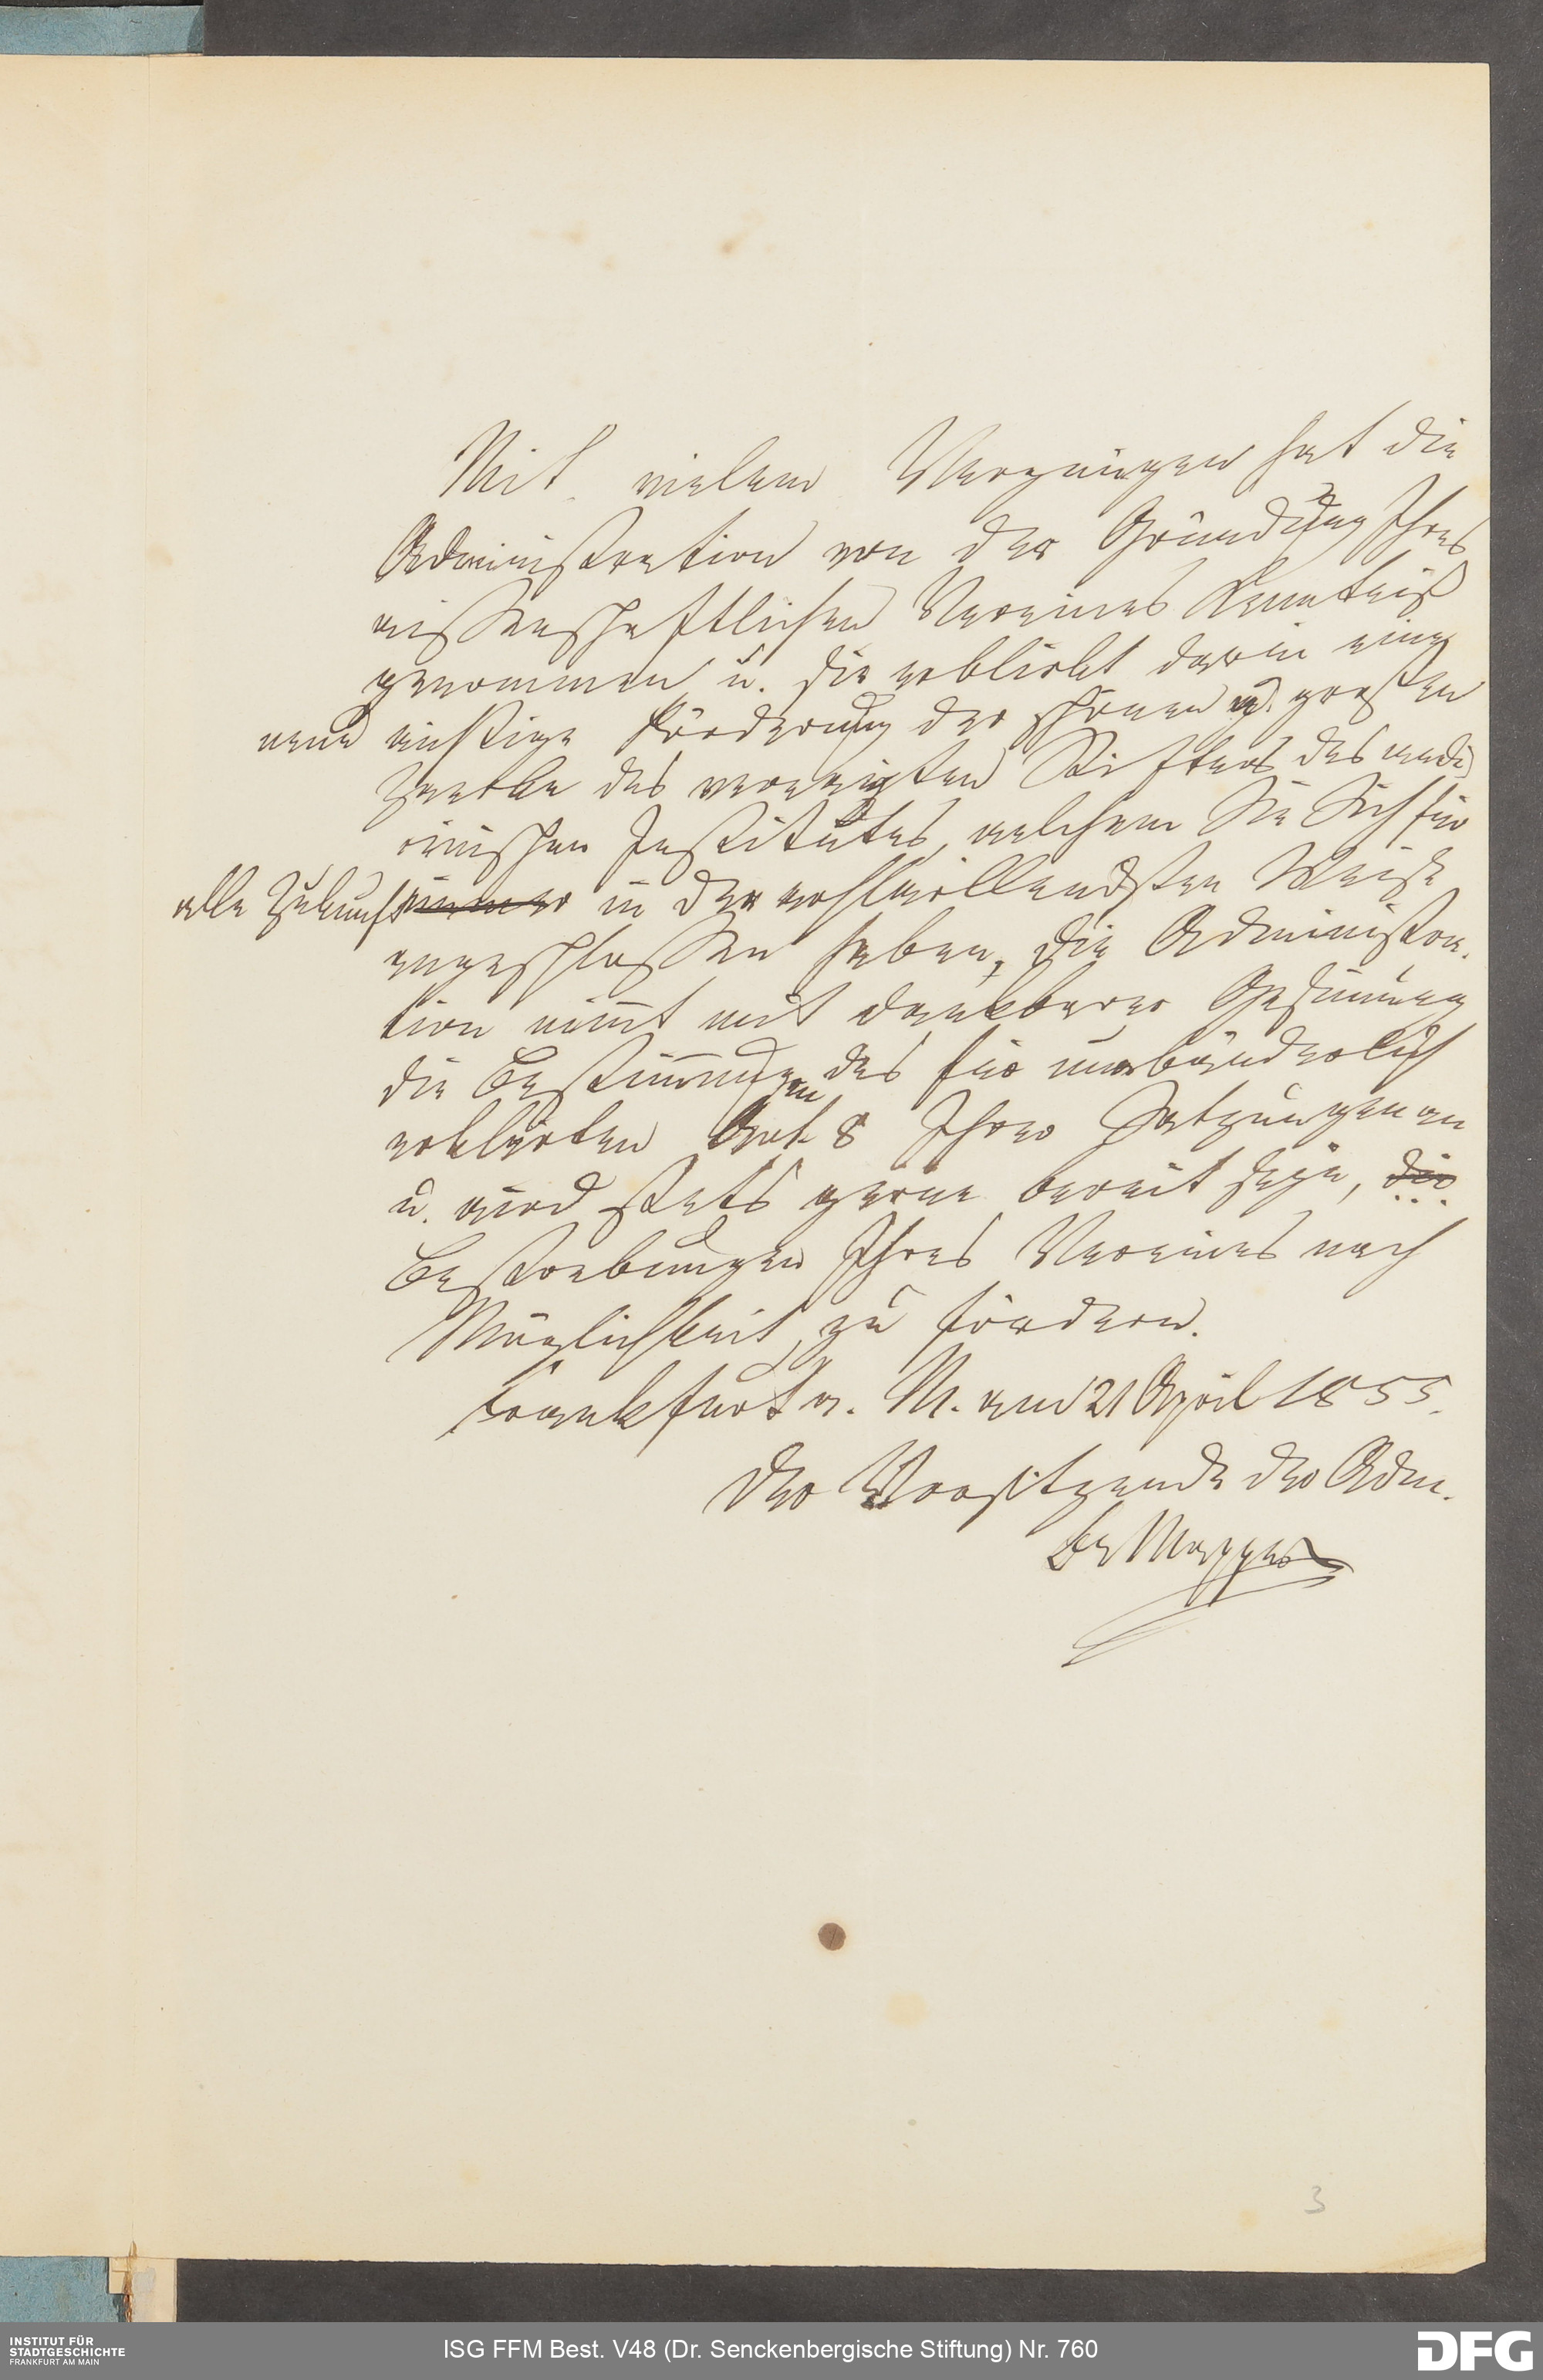 Mit vielem Vergnügen hat die
Administration von der Gründung Ihres
wissenschaftlichen Vereines Kenntniß
genommen u. sie erblickt darin eine
neue wichtige Förderung der schönen u. großen
Zwecke des verewigten Stifters des medi
cinischen Institutes, welchem Sie Sich für
alle Zukunft immer in der wohlwollendsten Weise
angeschlossen haben, die Administra-
tion nimt mit dankbarer Gesinnung
die Bestimmungen des für unabänderlich
erklärten Art. 8 Ihrer Satzungen an
u. wird stets gerne bereit sein, die
Bestrebungen Ihres Vereines nach
Möglichkeit zu fördern.
Frankfurt a. M. am 21 April 1855.
Der Vorsitzende der Adm.
Dr Mappes
3
INSTITUT FÜR
STADTGESCHICHTE
FRANKFURT AM MAIN
ISG FFM Best. V48 (Dr. Senckenbergische Stiftung) Nr. 760
DFG